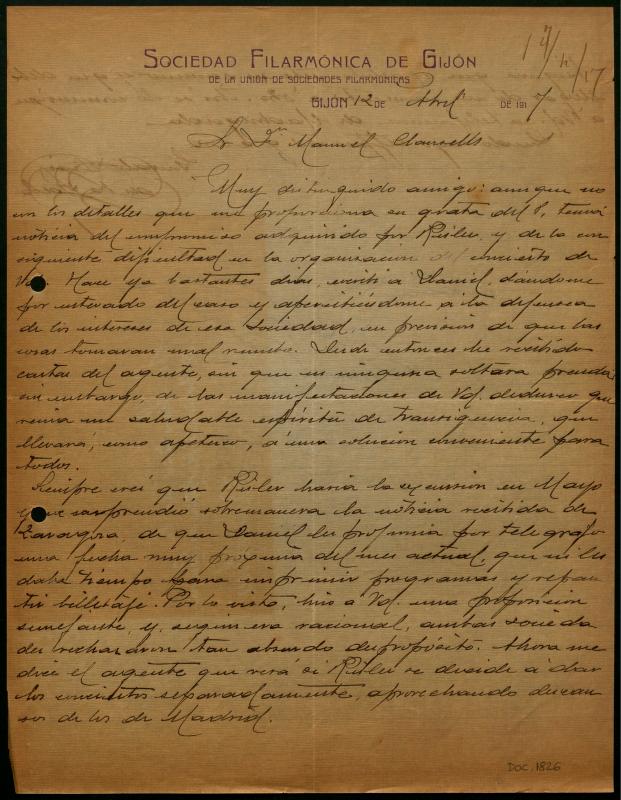 17/4/17
SOCIEDAD FILARMÓNICA DE GIJÓN
DE LA UNIÓN DE SOCIEDADES FILARMÓNICAS
GIJÓN 12 DE Abril DE 1917
Sr Dn Manuel Clausells
Muy distinguido amigo: aunque no
con los detalles que me proporciona su grata del 8, tenía
noticia del compromiso adquirido por Risler, y de la con
siguiente dificultad en la organización del concierto de
Vd. Hace ya bastantes días, escribí a Daniel, dándome
por enterado del caso y aprestándome a la defensa
de los intereses de esa Sociedad, en previsión de que las
cosas tomaran mal rumbo. Desde entonces he recibido
cartas del agente, sin que en ninguna soltara prenda;
sin embargo, de las manifestaciones de Vd. deduzco que
reina un saludable espíritu de transigencia, que
llevará, como apetezco, á una solución conveniente para
todos.
Siempre creí que Risler haría la excursión en Mayo
y me sorprendió sobremanera la noticia recibida de
Zaragoza, de que Daniel les proponía por telégrafo
una fecha muy próxima del mes actual, que ni les
daba tiempo para imprimir programas y repar
tir billetaje. Por lo visto, hizo a Vd. una proposición
semejante, y, según era racional, ambas socieda
des rechazaron tan absurdo despropósito. Ahora me
dice el agente que verá si Risler se decide á dar
los conciertos separadamente, aprovechando descan
sos de los de Madrid.
DOC. 1826